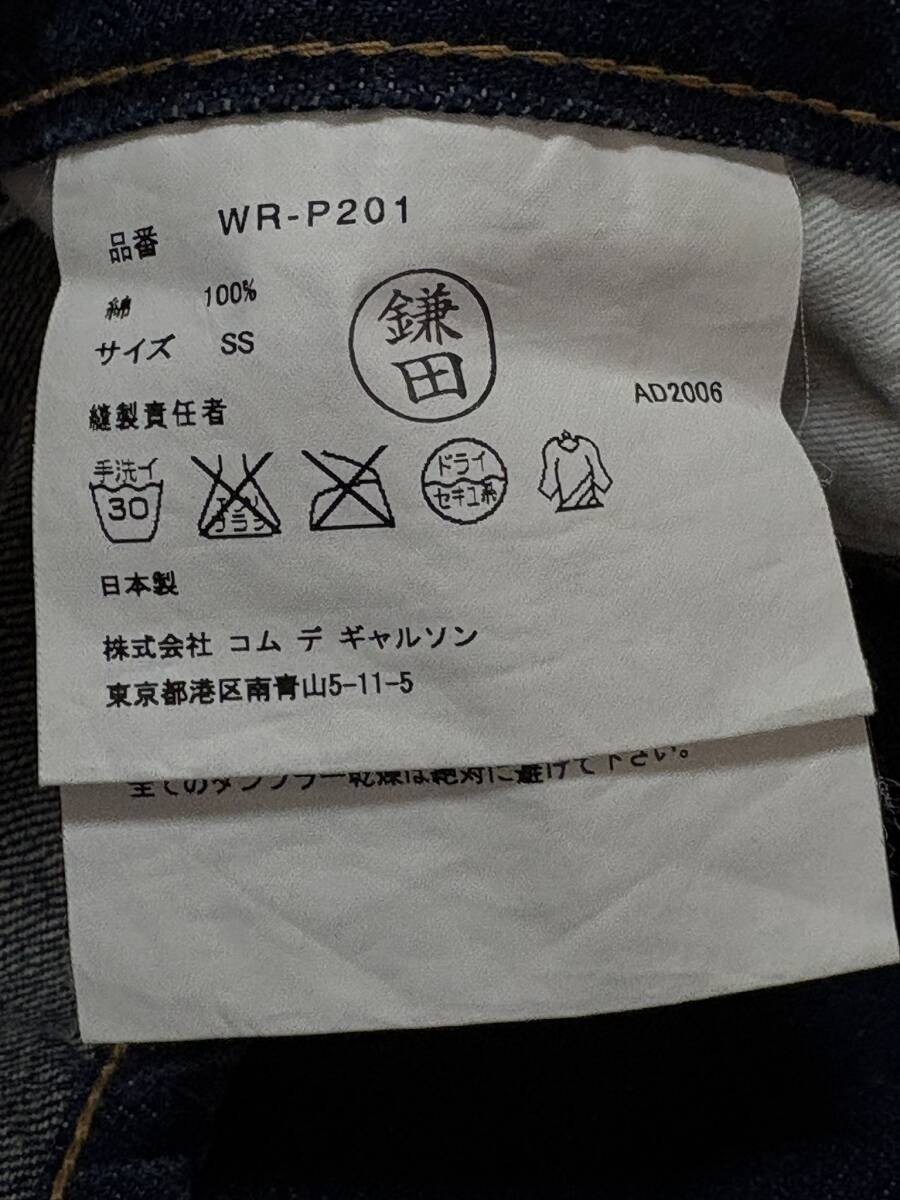 品番 WR-P201
綿 100%
サイズ SS
鎌
田
AD2006
縫製責任者
手洗イ
30
エンソ
サラシ
ドライ
セキユ系
日本製
株式会社 コム デ ギャルソン
東京都港区南青山5-11-5
全てのタンブラー乾燥は絶対に避けて下さい。